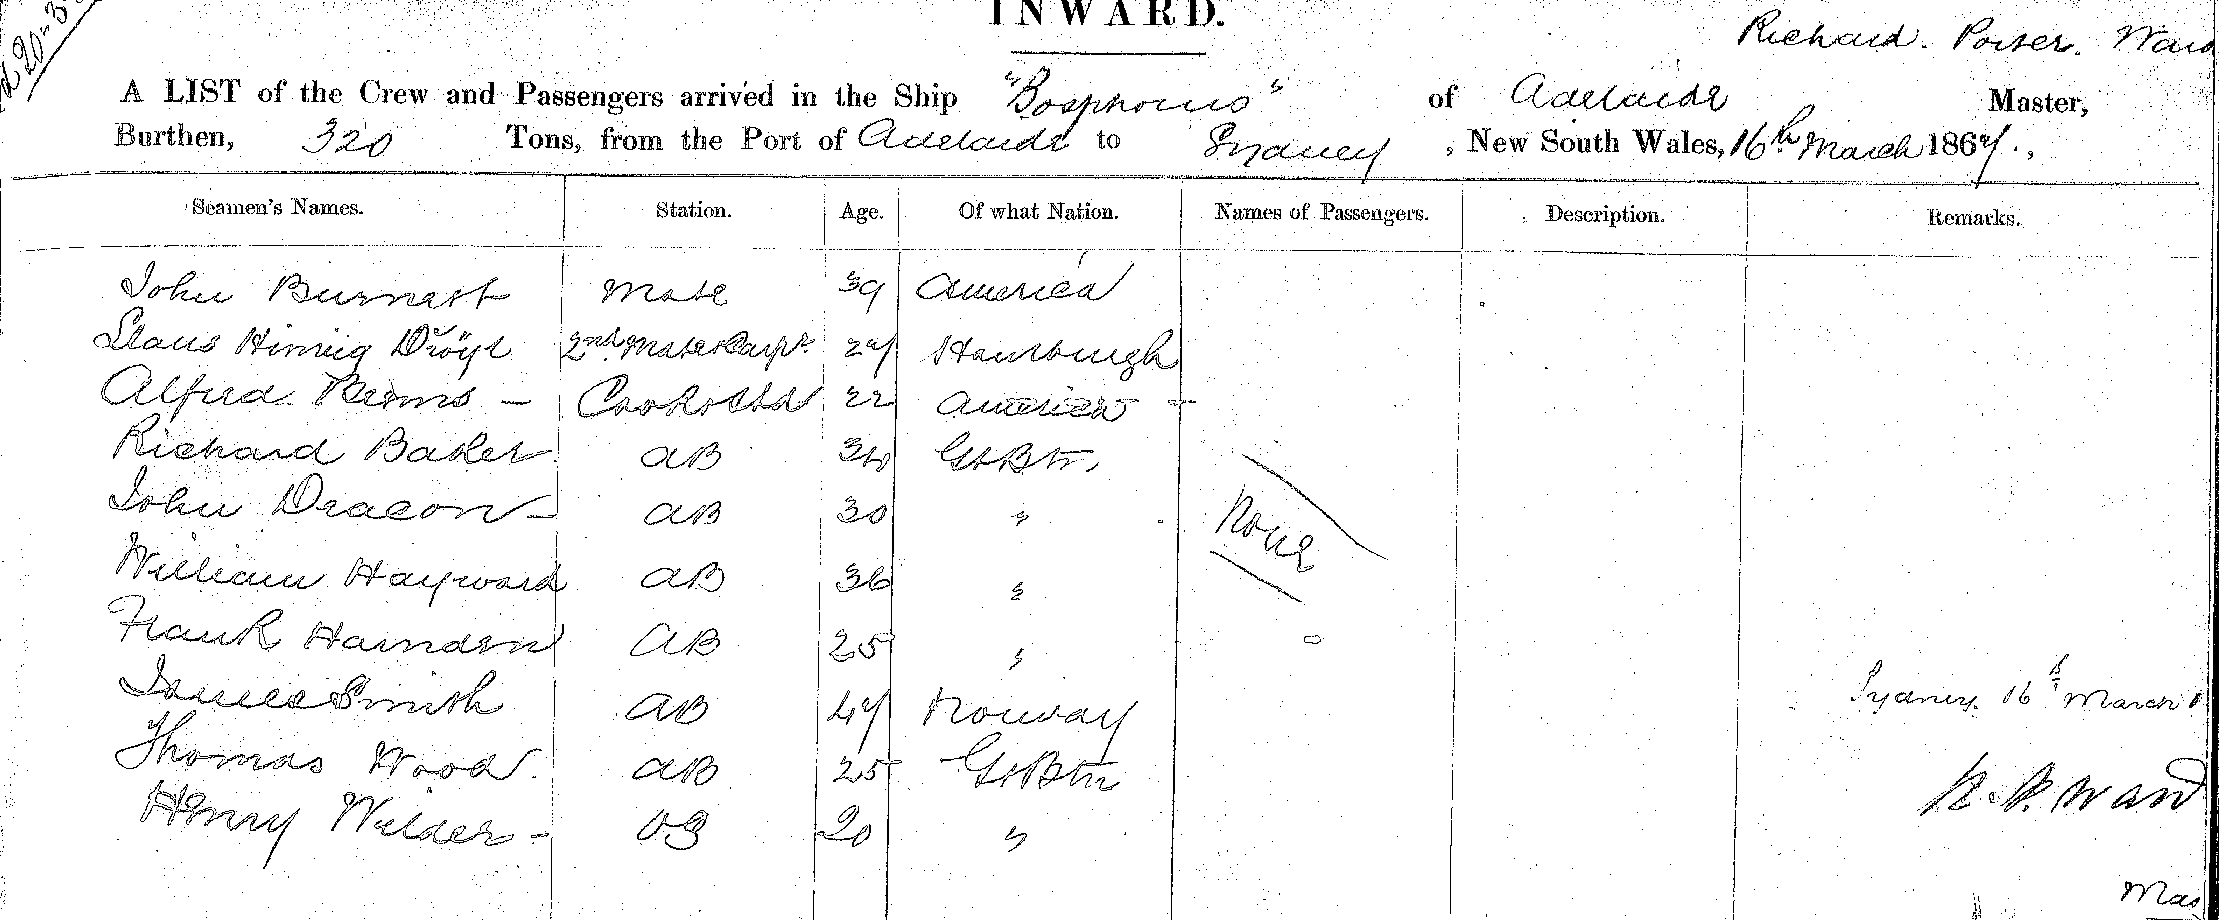 INWARD.
Richard. Porter. Ward
A LIST of the Crew and Passengers arrived in the Ship "Bosphorus" of Adelaide Master,
Burthen, 320 Tons, from the Port of Adelaide to Sydney, New South Wales, 16th March 1867.,
Seamen's Names. Station. Age. Of what Nation. Names of Passengers. Description. Remarks.
John Mate 39 America
2nd Mate & Carptr. 27 Hamburgh
Alfred — Cook & Std 22 America —
Richard Baker AB Gt Btn.
John Deacon — AB 30 "
None
William Hayward AB 36 "
Frank Harnden AB 25 "
James Smith AB 47 Norway
Sydney. 16th March
Thomas Wood. AB 25 Gt Btn
R. P. Ward
Henry Wilder - OS 20 "
Mas